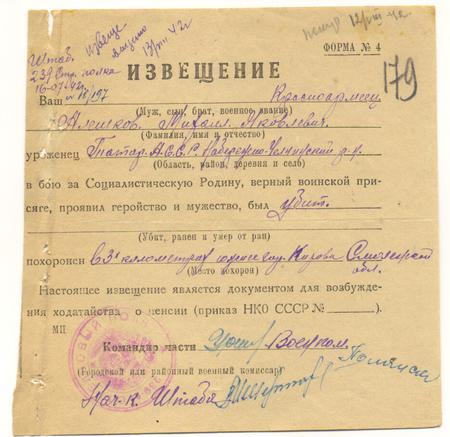 12/VIII 42
ФОРМА № 4
Штаб.
извещ.
239 Стр. полка
16-07 42г
№ 11/197
179
ИЗВЕЩЕНИЕ
Ваш Красноармеец
(Муж, сын, брат, военное звание)
Алешков Михаил Яковлевич.
(Фамилия, имя и отчество)
уроженец Татар. А.С.С.Р. Набережно-Челнинский р-н.
(Область, район, деревня и село)
в бою за Социалистическую Родину, верный воинской при-
сяге, проявил геройство и мужество, был убит.
(Убит, ранен и умер от ран)
похоронен в 3х километрах Кирова Смоленской
обл.
(Место похорон)
Настоящее извещение является документом для возбужде-
ния ходатайства о пенсии (приказ НКО СССР № ).
МП
Командир части Военком.
(Городской или районный военный комиссар)
Нач-к Штаба